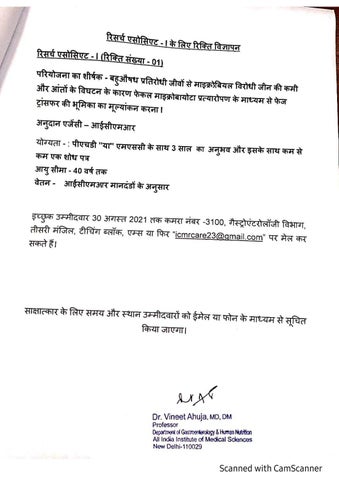 रिसर्च एसोसिएट - I के लिए रिक्ति विज्ञापन
रिसर्च एसोसिएट - I (रिक्ति संख्या - 01)
परियोजना का शीर्षक - बहुऔषध प्रतिरोधी जीवों से माइक्रोबियल विरोधी जीन की कमी
और आंतों के विघटन के कारण फेकल माइक्रोबायोटा प्रत्यारोपण के माध्यम से फेज
ट्रांसफर की भूमिका का मूल्यांकन करना ।
अनुदान एजेंसी – आईसीएमआर
योग्यता - : पीएचडी "या" एमएससी के साथ 3 साल का अनुभव और इसके साथ कम से
कम एक शोध पत्र
आयु सीमा - 40 वर्ष तक
वेतन - आईसीएमआर मानदंडों के अनुसार
इच्छुक उम्मीदवार 30 अगस्त 2021 तक कमरा नंबर -3100, गैस्ट्रोएंटरोलॉजी विभाग,
तीसरी मंजिल, टीचिंग ब्लॉक, एम्स या फिर "icmrcare23@gmail.com" पर मेल कर
सकते हैं।
साक्षात्कार के लिए समय और स्थान उम्मीदवारों को ईमेल या फोन के माध्यम से सूचित
किया जाएगा।
Dr. Vineet Ahuja, MD, DM
Professor
Department of Gastroenterology & Human Nutrition
All India Institute of Medical Sciences
New Delhi-110029
Scanned with CamScanner